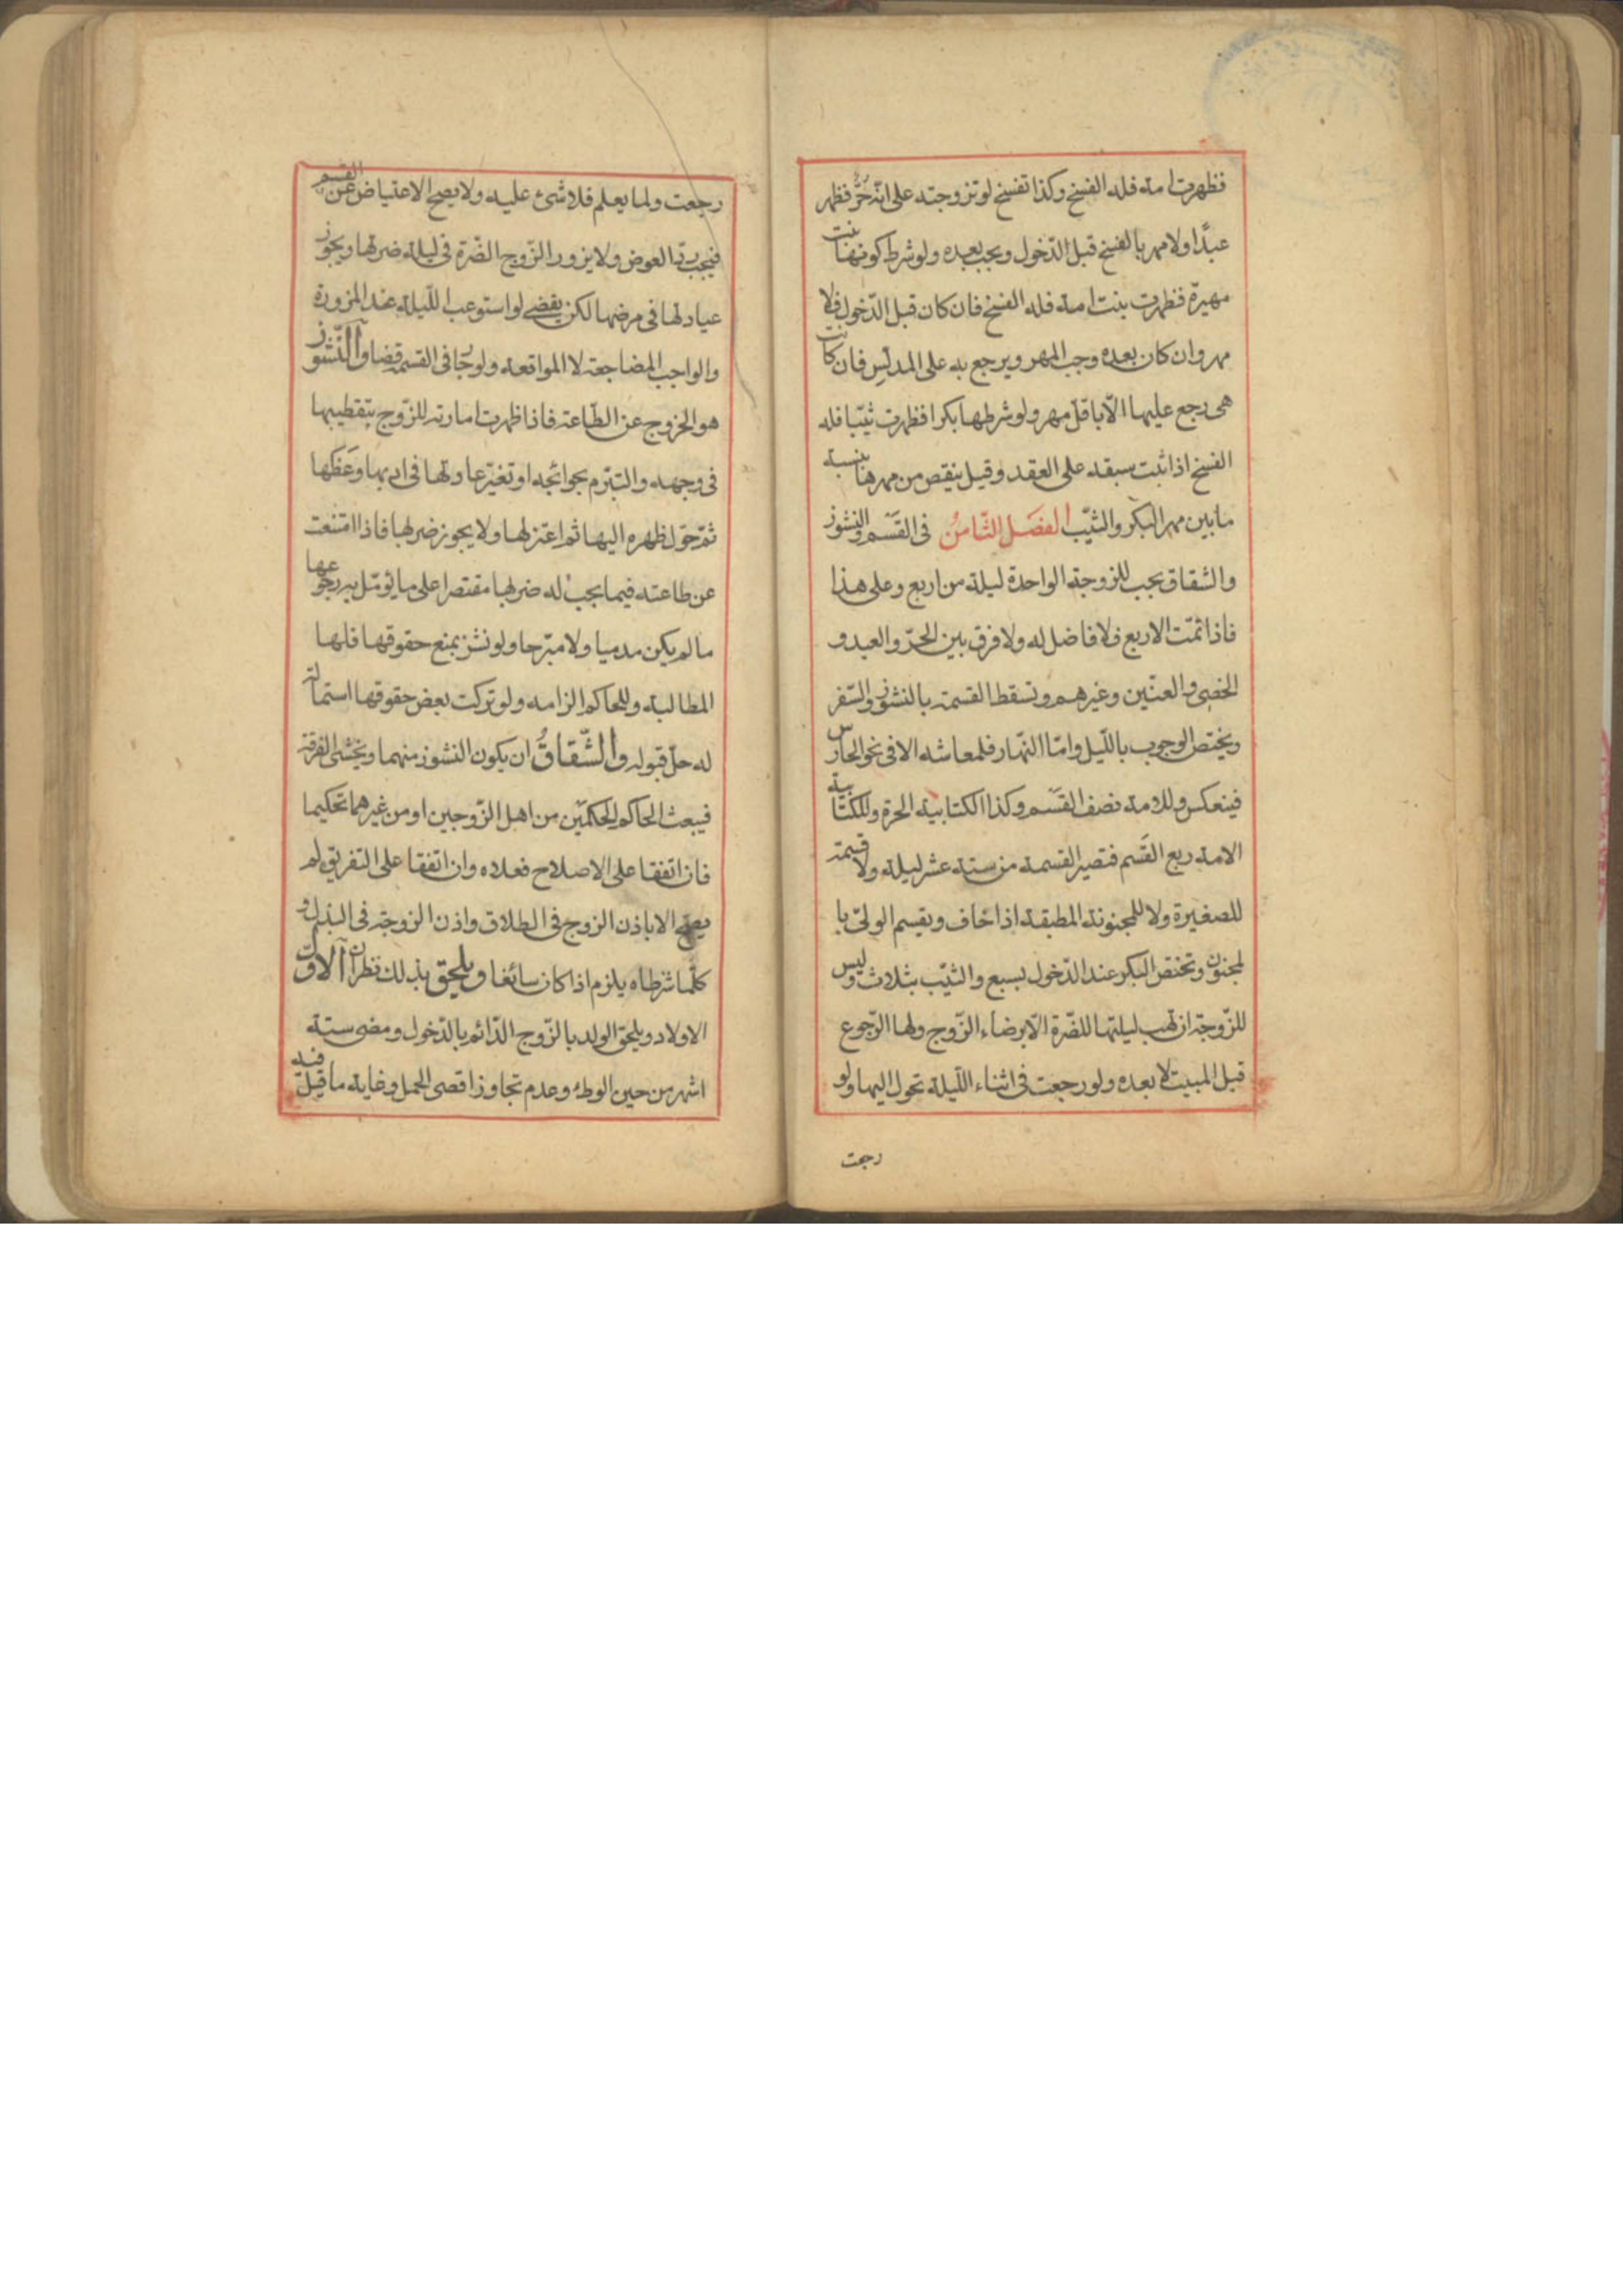 فظهرت امة فله الفسخ وكذا تفسخ لو تزوجته على انّه حُرٌّ فظهر
عبدًا ولا مهر بالفسخ قبل الدّخول ويجب بعده ولو شرط كونها بنت
مهيرة فظهرت بنت امة فله الفسخ فان كان قبل الدّخول فلا
مهر وان كان بعده وجب المهر ويرجع به على المدلّس فان كانت
هى رجع عليها الّا باقلّ مهر ولو شرطها بكرا فظهرت ثيّبا فله
الفسخ اذا ثبت سبقه على العقد وقيل ينقص من مهرها بنسبة
ما بين مهر البكر والثيّب الفصَل الثّامنُ فى القَسْم والنشوز
والشقاق يجب للزوجة الواحدة ليلة من اربع وعلى هذا
فاذا تمّت الاربع فلا فاضل له ولا فرق بين الحرّ والعبد و
الخصىّ والعنّين وغيرهم وتسقط القسمة بالنشوز والسّفر
ويختصّ الوجوب باللّيل وامّا النّهار فلمعاشه الا فى نحو الحارس
فينعكس وللامة نصف القَسْم وكذا الكتابيّة الحرة وللكتابية
الامة ربع القَسم فتصير القسمة من ستة عشر ليلة ولا قسمة
للصغيرة ولا للمجنونة المطبقة اذا خاف ويقسم الولىّ با
لمجنون وتختصّ البكر عند الدّخول بسبع والثيّب بثلاث وليس
للزّوجة ان تهب ليلتها للضّرة الّا برضاء الزّوج ولها الرّجوع
قبل المبيت لا بعده ولو رجعت فى اثناء اللّيلة تحول اليها ولو
رجعت
رجعت ولما يعلم فلا شئ عليه ولا يصح الاعتياض عن القسم
فيجب ردّ العوض ولا يزور الزّوج الضّرة فى ليلة ضرتها ويجوز
عيادتها فى مرضها لكن يقضى لو استوعب اللّيلة عند المزورة
والواجب المضاجعة لا المواقعة ولو جار فى القسمة قضا والنّشوز
هو الخروج عن الطّاعة فاذا ظهرت امارته للزّوج بتقطيبها
فى وجهه والتبرّم بحوائجه او تغيّر عادتها فى ادبها وعَظَها
ثمّ حوّل ظهره اليها ثم اعتزلها ولا يجوز ضربها فاذا امتنعت
عن طاعته فيما يجب له ضربها مقتصرا على ما يؤمّل به رجوعها
ما لم يكن مدميا ولا مبّرحا ولو نشز بمنع حقوقها فلها
المطالبة وللحاكم الزامه ولو تركت بعض حقوقها استمالة
له حلّ قبوله والشّقاقُ ان يكون النشوز منهما ويخشى الفرقة
فيبعث الحاكم الحكمَين من اهل الزّوجين او من غيرهما تحكيما
فان اتفقا على الاصلاح فعلاه وان اتفقا على التفريق لم
يصح الا باذن الزوج فى الطلاق واذن الزوجة فى البذل و
كلّما شرطاه يلزم اذا كان سائغا ويلحق بذلك نظران الاوّل
الاولاد ويلحق الولد بالزّوج الدّائم بالدّخول ومضى ستة
اشهر من حين الوطئ وعدم تجاوز اقصى الحمل وغاية ما قيل فيه